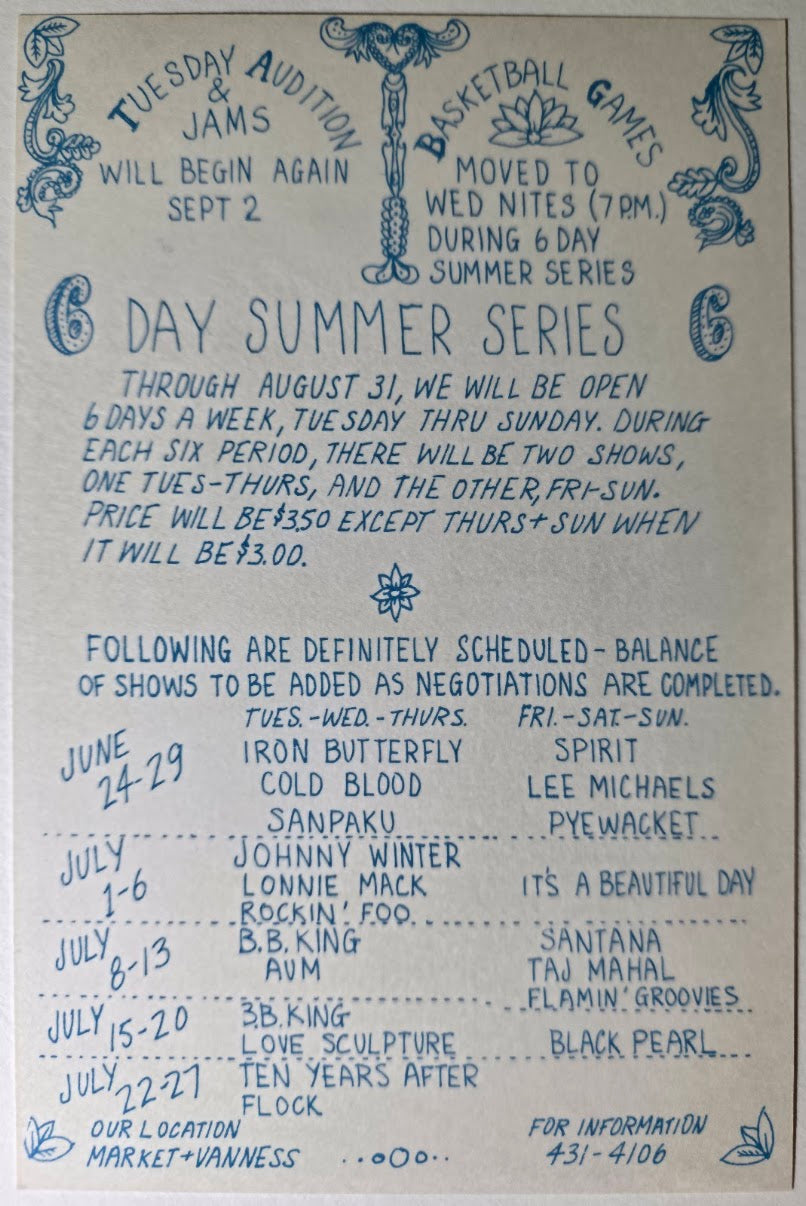 TUESDAY AUDITION
&
JAMS
WILL BEGIN AGAIN
SEPT 2
BASKETBALL GAMES
MOVED TO
WED NITES (7 P.M.)
DURING 6 DAY
SUMMER SERIES
6 DAY SUMMER SERIES 6
THROUGH AUGUST 31, WE WILL BE OPEN
6 DAYS A WEEK, TUESDAY THRU SUNDAY. DURING
EACH SIX PERIOD, THERE WILL BE TWO SHOWS,
ONE TUES-THURS, AND THE OTHER, FRI-SUN.
PRICE WILL BE $3.50 EXCEPT THURS + SUN WHEN
IT WILL BE $3.00.
FOLLOWING ARE DEFINITELY SCHEDULED - BALANCE
OF SHOWS TO BE ADDED AS NEGOTIATIONS ARE COMPLETED.
TUES.-WED.-THURS. FRI.-SAT.-SUN.
JUNE 24-29
IRON BUTTERFLY
COLD BLOOD
SANPAKU
SPIRIT
LEE MICHAELS
PYEWACKET
JULY 1-6
JOHNNY WINTER
LONNIE MACK
ROCKIN' FOO
IT'S A BEAUTIFUL DAY
JULY 8-13
B.B. KING
AUM
SANTANA
TAJ MAHAL
FLAMIN' GROOVIES
JULY 15-20
B.B. KING
LOVE SCULPTURE
BLACK PEARL
JULY 22-27
TEN YEARS AFTER
FLOCK
OUR LOCATION
MARKET + VANNESS
FOR INFORMATION
431-4106